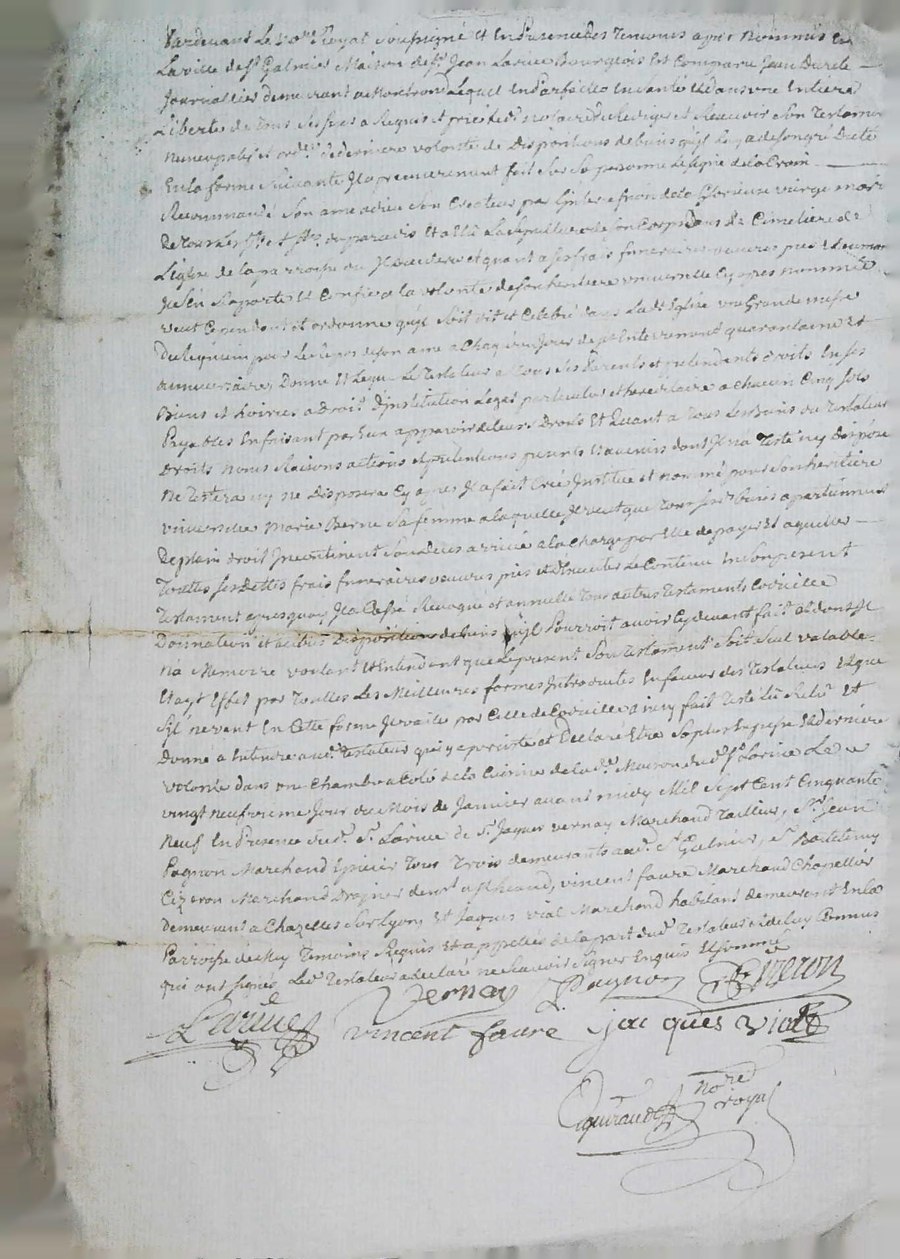 Pardevant Le No.re Royal Soussigné Et En presence des Temoins apres Nommés En
La ville de S.t Galmier Maison de S.r Jean Larue Bourgeois Est Comparu Jean
Journallier demeurant a Montrond Lequel En parfaitte En santé Et dans une Entiere
Liberté de tous ses sens a Requis et prié led. notaire de Rediger et Recevoir Son Testament
Nuncupatif et ord.re de derniere volonté de Dispositions de biens qu'il Luy a de son gré Dicté
En la forme Suivante Il a premierement fait Sur Sa personne Le signe de la Croix
Recommandé Son ame a dieu Son Createur par L'intercession de la Glorieuse vierge marie
De tous Les S.ts et S.tes du paradis Et Elû La Sepulture de Son Corps dans Le Cimetiere de
L'église de la parroche ou Il decedera et quant a ses frais funeraires oeuvres pies et
Il s'en Raporte Et Confie a la volonté de Son heritiere universelle Cy apres nommée
veut Cependant et ordonne qu'il Soit dit et Celebré dans La d. Eglise une Grande messe
de Requiem pour Le Repos de son ame a Chaqu'un Jours de Ses Enterrement quarantaine et
anniversaire, Donne Et Legue Le Testateur a Tous Ses Parents et pretendants droits En Ses
Biens et hoiries a Droit D'institution Legat particulier et hereditaire a chacun Cinq Sols
Payables En faisant par Eux apparoir de leurs Droits Et Quant a Tous Les biens du Testateur
Droits Noms Raisons actions et pretentions presents Et avenirs dont Il n'a Testé ny Disposé
Ne Testera ny ne Disposera Cy apres Il a fait Crée Institué et nommé pour Son heritiere
universelle Marie Berne Sa femme a laquelle Il veut que Tous Ses d. biens apartiennent
De plain droit Incontinent Son deces arrivé a la Charge par Elle de payer Et aquitter
Touttes Ses Dettes frais funeraires oeuvres pies et d'Executer Le Contenu En Son present
Testament apres quoy Il a Cassé Revoqué et annullé Tous autres Testaments Codicille
Donnation et autres Dispositions de biens qu'il Pourroit avoir Cy devant fait et dont Il
N'a Memoire voulant Et Entendant que Le present Son Testament Soit Seul valable
Et ayt Effet par Touttes Les Meilleures formes Introduites En faveur des Testateurs Et que
S'il ne vaut En Cette forme Il vaille par Celle de Codicille ainsy fait Testé Lû Relû Et
Donné a Entendre aud. Testateur qui y a persisté et Declaré Etre Sa plus Expresse Et derniere
volonté dans une Chambre a Coté de la Cuisine de la d. Maison dud. S.r Larue Le
vingt neufvieme Jour du Mois de Janvier avant midy Mil Sept Cent Cinquante
Neuf En Presence dud. S.r Larue de S.r Jaques Vernay Marchand Tailleur, S.r Jean
Pagnon Marchand Epicier Tous Trois demeurants aud. S.t Galmier, S.r Bartelemy
Cizeron Marchand Drapier dem.t a, Vincent Faure Marchand Chapellier
Demeurant a Chazelles Sur Lyon Et Jaques Vial Marchand habitant demeurant En la
Parroisse de Temoins Requis Et appellés de la part dud. Testateur et de luy Connus
qui ont signés Led. Testateur a declaré ne Sçavoir Signer Enquis Et Sommé
Larue Vernay Pagnon Cizeron
vincent faure jacques vial
Eguiraud No.re royal